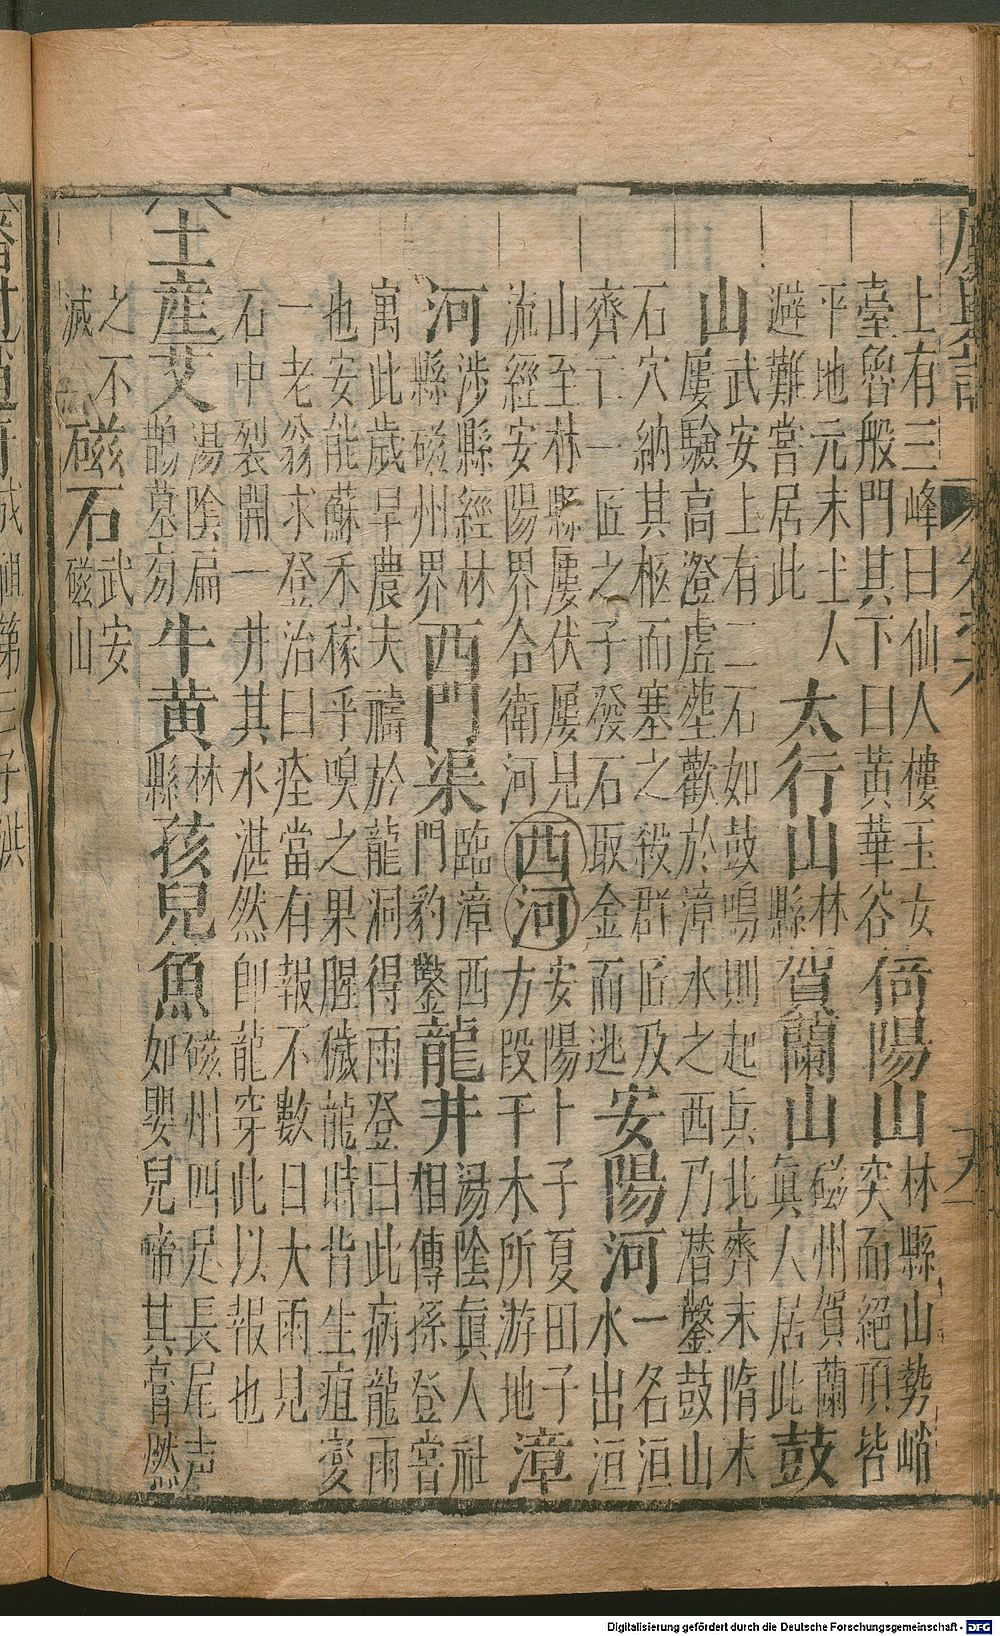 廣輿記 卷之六 五
上有三峰曰仙人樓玉女
臺魯般門其下曰黃華谷
倚陽山
林縣山勢峭
突而絕頂皆
平地元末土人
避難嘗居此
太行山
林
縣
賀蘭山
磁州賀蘭
眞人居此
鼓
山
武安上有二石如鼓鳴則起兵北齊末隋末
屢驗高澄虛葬歡於漳水之西乃潛鑿鼓山
石穴納其柩而塞之殺群匠及
齊亡一匠之子發石取金而逃
安陽河
一名洹
水出洹
山至林縣屢伏屢見
流經安陽界合衛河
西河
安陽卜子夏田子
方段干木所游地
漳
河
涉縣經林
縣磁州界
西門渠
臨漳西
門豹鑿
龍井
湯陰眞人社
相傳孫登嘗
寓此歲旱農夫禱於龍洞得雨登曰此病龍雨
也安能蘇禾稼乎嗅之果腥穢龍時背生疽變
一老翁求登治曰痊當有報不數日大雨見
石中裂開一井其水湛然卽龍穿此以報也
土產
艾
湯陰扁
鵲墓旁
牛黃
林
縣
孩兒魚
磁州四足長尾声
如嬰兒啼其膏燃
之不
滅
磁石
武安
磁山
成祖第三子洪
Digitalisierung gefördert durch die Deutsche Forschungsgemeinschaft - DFG